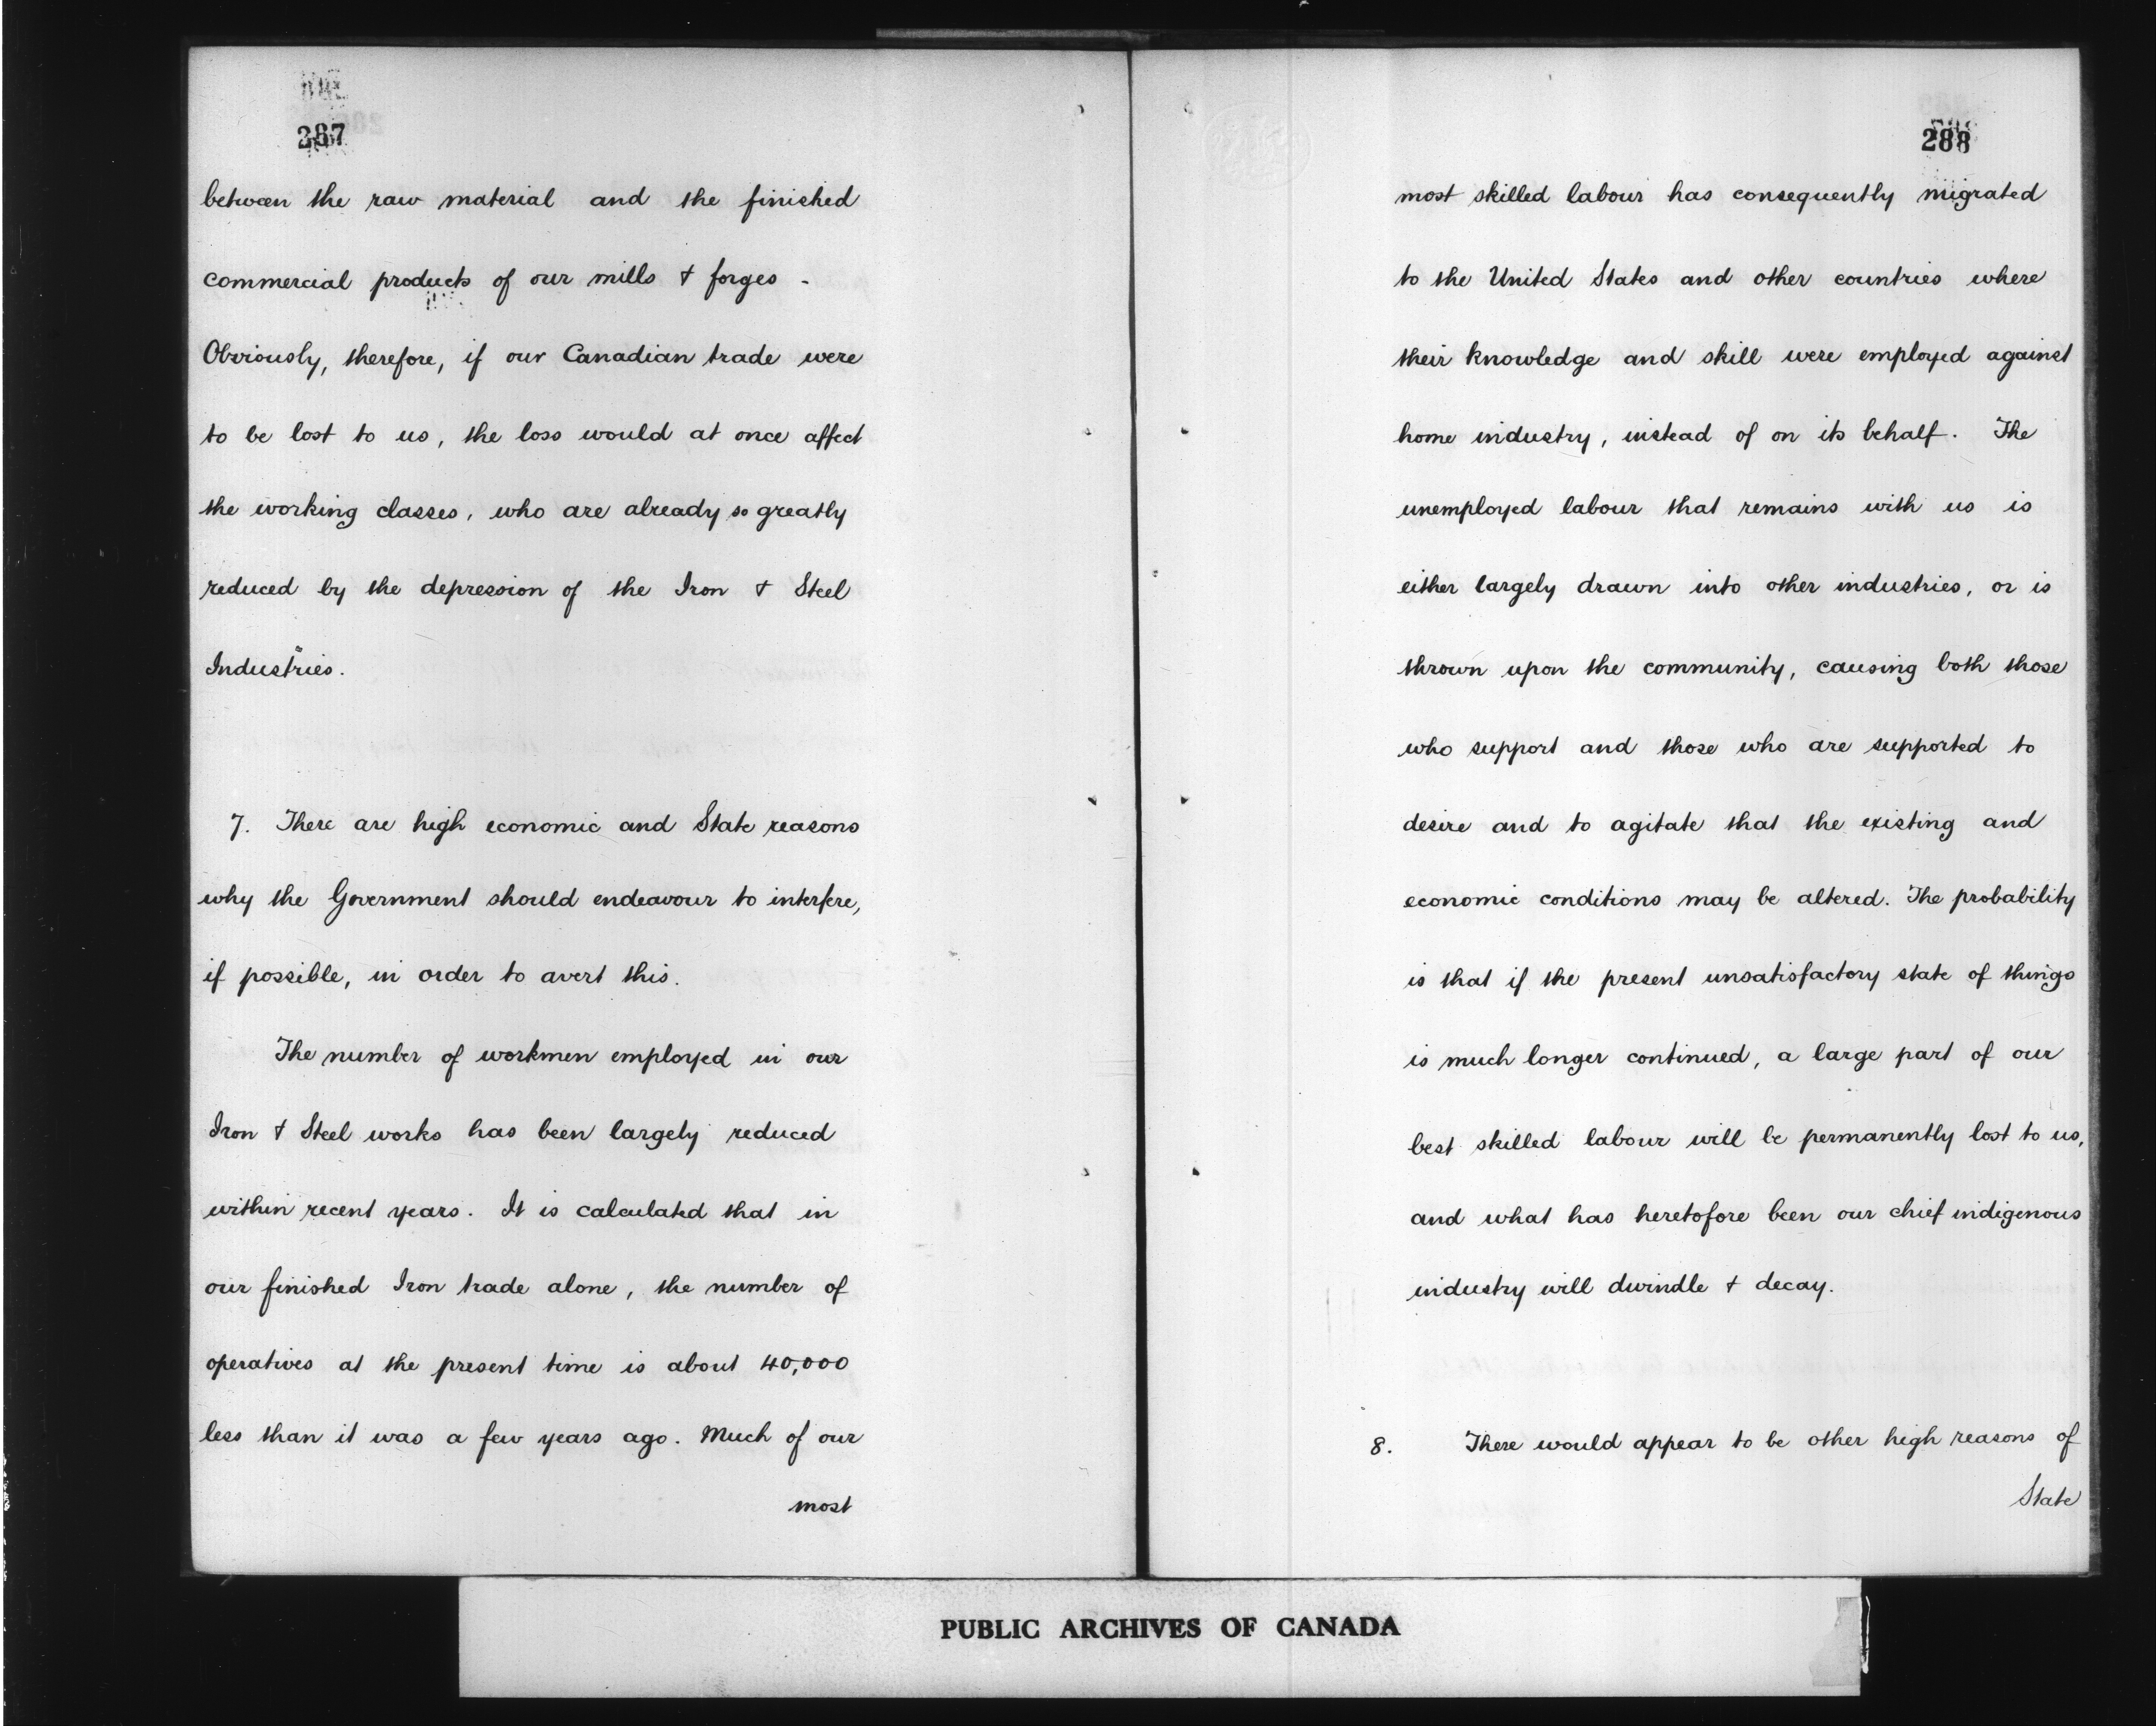 287
between the raw material and the finished
commercial products of our mills & forges -
Obviously, therefore, if our Canadian trade were
to be lost to us, the loss would at once affect
the working classes, who are already so greatly
reduced by the depression of the Iron & Steel
Industries.
7. There are high economic and State reasons
why the Government should endeavour to interfere,
if possible, in order to avert this.
The number of workmen employed in our
Iron & Steel works has been largely reduced
within recent years. It is calculated that in
our finished Iron trade alone, the number of
operatives at the present time is about 40,000
less than it was a few years ago. Much of our
most
288
most skilled labour has consequently migrated
to the United States and other countries where
their knowledge and skill were employed against
home industry, instead of on its behalf. The
unemployed labour that remains with us is
either largely drawn into other industries, or is
thrown upon the community, causing both those
who support and those who are supported to
desire and to agitate that the existing and
economic conditions may be altered. The probability
is that if the present unsatisfactory state of things
is much longer continued, a large part of our
best skilled labour will be permanently lost to us,
and what has heretofore been our chief indigenous
industry will dwindle & decay.
8. There would appear to be other high reasons of
State
PUBLIC ARCHIVES OF CANADA